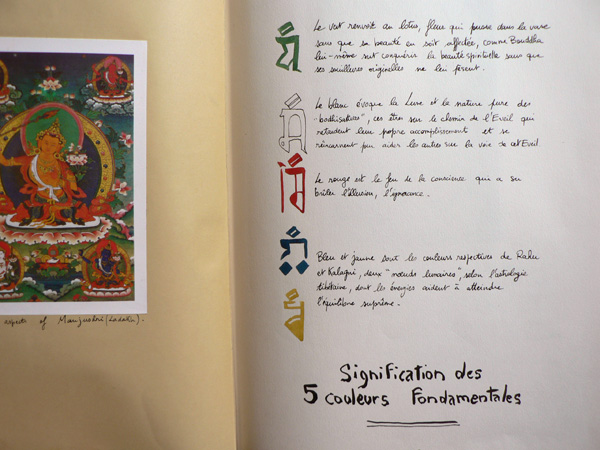 aspects of Manjushri (Ladakh).
Le vert renvoit au lotus, fleur qui pousse dans la vase
sans que sa beauté en soit affectée, comme Bouddha
lui-même sut conquérir la beauté spirituelle sans que
ses souillures originelles ne lui fèrent.
Le blanc évoque la Lune et la nature pure des
"bodhisattvas", ces êtres sur le chemin de l'Eveil qui
retardent leur propre accomplissement et se
réincarnent pour aider les autres sur la voie de cet Eveil.
Le rouge est le feu de la conscience qui a su
brûler l'illusion, l'ignorance.
Bleu et jaune sont les couleurs respectives de Rahu
et Kalagni, deux "nœuds lunaires", selon l'astrologie
tibétaine, dont les énergies aident à atteindre
l'équilibre suprême.
Signification des
5 couleurs Fondamentales